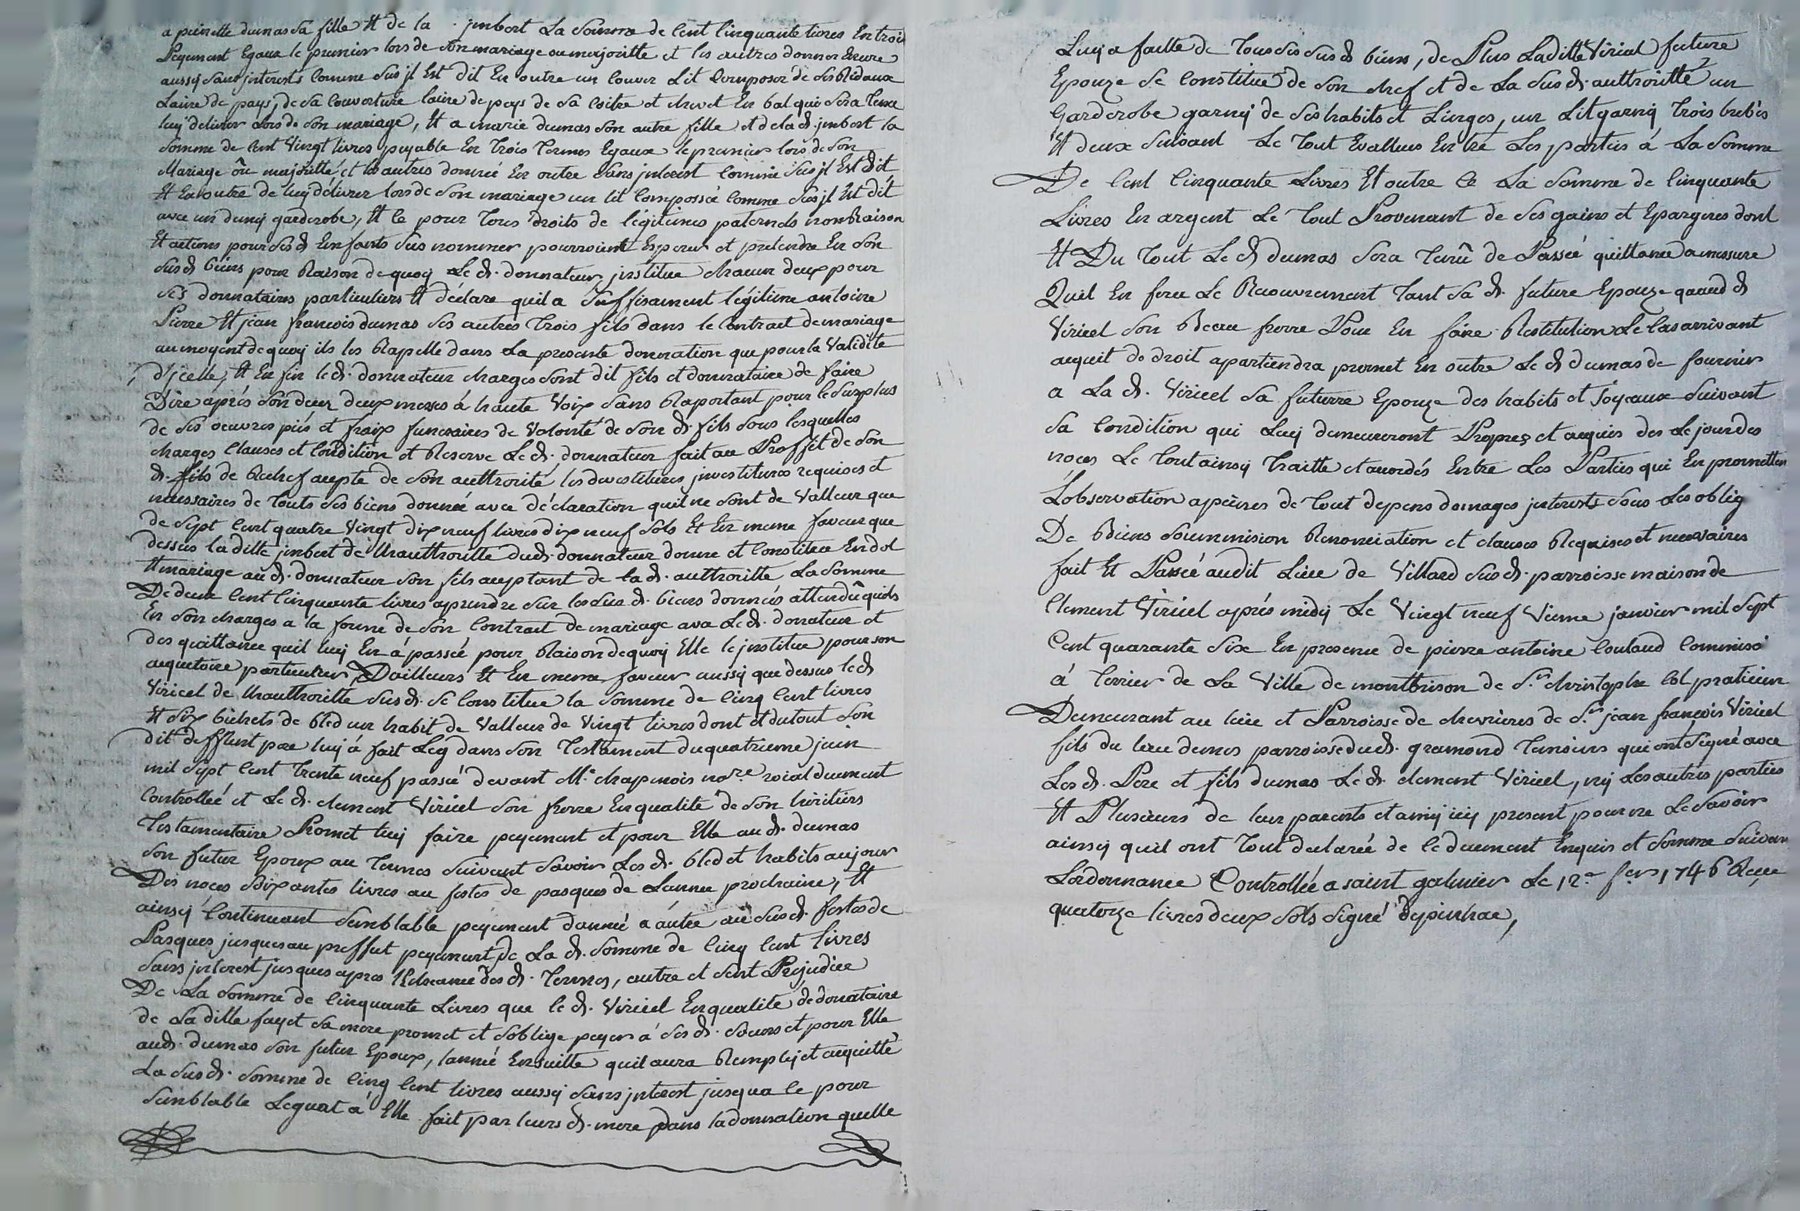 a pierette dumas sa fille Et de la jmbert La somme de Cent Cinquante livres En trois
Payement Egaux le premier lors de son mariage ou majoritté et les autres donner Encore
aussy sans jnterests Comme sus jl Est dit En outre un Couver Lit Composer de ses Rideaux
Laine de pays, de sa Couverture laine de pays de sa Coitre et chevet En bal qui sera tenu
luy delivrer lors de son mariage, Et a marie dumas son autre fille et de lad. jmbert la
somme de Cent Vingt livres payable En Trois Termes Egaux le premier lors de son
Mariage ou majoritté, et les autres donnée En outre sans jnterest Comme sus jl Est dit
Et En outre de luy délivrer lors de son mariage un lit Composée Comme sus jl Est dit
avec un demy garderobe, Et ce pour Tous droits de légitimes paternels nom Raison
Et actions pour sesd. Enfants sus nommer pourroient Esperer et pretendre En son
susd. biens pour Raison de quoy Le d. donnateur jnstitue chacun deux pour
ses donnataires particuliers Et déclare quil a suffisament légitime antoine
Pierre Et jean françois dumas ses autres Trois fils dans le Contrat de mariage
au moyent de quoy ils les Rapelle dans La presente donnation que pour la Validité
dJcelle, Et En fin le d. donnateur charge sont dit fils et donnataire de faire
Dire aprés son deces deux messes à haute Voix sans Raportant pour le surplus
de ses oeuvres piés et fraix funeraires de Volonté de son d. fils sous lesquelles
charges Clauses et Condition et Reserve Le d. donnateur fait au Proffit de son
d. fils de Rechef aupte de son authorité les devestitures jnvestitures requises et
nécessaires de Touts ses biens donnée avec déclaration quil ne sont de Valleur que
de sept Cent quatre Vingt dix neuf livres dix neuf sols Et En meme faveur que
dessus ladille jmbert de lhauthoritte dud. donnateur donne et Constitue En dot
Et mariage au d. donnateur son fils auptant de la d. authoritte La somme
De deux Cent Cinquante livres aprendre sur les sus d. biens donnés attendû quils
En son charges a la forme de son Contrait de mariage avec Le d. donateur et
des quittance quil luy En a passée pour Raison de quoy Elle le jnstitue pour son
aquetaire particulier, Dailleurs Et En meme faveur aussy que dessus le d.
Viricel de lhauthoritte susd. se Constitue la somme de Cinq Cent livres
Et Six bichets de bled un habit de Valleur de Vingt livres dont et du tout son
dit deffunt pere luy à fait Leg dans son Testament du quatrieme juin
mil sept Cent Trente neuf passée devant Me. chapuois nore roial duement
Controllée et Le d. clement Viricel son frere En qualité de son héritiers
Testamentaire Promet luy faire payement et pour Elle au d. dumas
son futur Epoux au Termes suivant savoir Les d. bled et habits au jour
Des noces Soixantes livres au festes de pasques de Lannee prochaine, Et
ainsy Continuant semblable payement dannée a autre au susd. festes de
Pasques jusques au proffit payement de La d. somme de Cinq Cent livres
sans jnterest jusques apres lEcheance des d. Termes, outre et sent Prejudice
De La somme de Cinquante Livres que le d. Viricel En qualité de donataire
de Ladille fayet sa mere promet et soblige payer a ses d. soeurs et pour Elle
aud. dumas son futur Epoux, lannée En suitte quil aura Remply et acquitté
La sus d. somme de Cinq Cent livres aussy sans jnterest jusqua ce pour
semblable Leguat à Elle fait par leurs d. mere dans la donnation quelle
Luy a faitte de Tous ses sus d. biens, de Plus Laditte Viricel future
Epouze se Constitue de son chef et de La sus d. authoritté un
Garderobe garny de ses habits et Linges, un Lit garny Trois brebis
Et deux suivant Le Tout Evallues Entre Les parties à La somme
De Cent Cinquante Livres Et outre Ce La somme de Cinquante
Livres En argent Le Tout Provenant de ses gains et Epargnes dont
Et Du Tout Le d. dumas sera Tenû de Passée quittance a mesure
Quil En fera Le Recouvrement Tant sa d. future Epouze quau d.
Viricel son Beau frere Pour En faire Restitution Le Cas arrivant
aequit de droit apartiendra promet En outre Le d. dumas de fournir
a La d. Viricel sa futurre Epouze des habits et Joyaux suivant
sa Condition qui Luy demeureront Propres et acquis des Le jour des
noces Le Tout ainsy Traitte et accordés Entre Les Parties qui En promettent
Lobservation apeines de Tout depens domages jnterests sous Les oblig
De Biens soummision Renonciation et clauses Requises et necessaires
fait Et Passée audit Lieu de Villard susd. parroisse maison de
Clement Viricel aprés midy Le Vingt neuf Vieme janvier mil sept
Cent quarante Six En presence de pierre antoine Coulaud Commiss
à Terrier de La Ville de montbrison de Sr. christophle Col praticien
Demeurant au lieu et Parroisse de chevrieres de Sr. jean françois Viricel
fils du lieu dumas parroisse dud. gramond Temoins qui ont signé avec
Les d. Pere et fils dumas Le d. clement Viricel, ny Les autres parties
Et Plusieurs de leur parents et amy icy present pour ne Le savoir
ainsy quil ont Tout declarée de ce duement Enquis et somme suivan
Lordonnance Controllée a saint galmier Le 12e fer 1746 Reçu
quatorze livres deux sols signé depinhac,